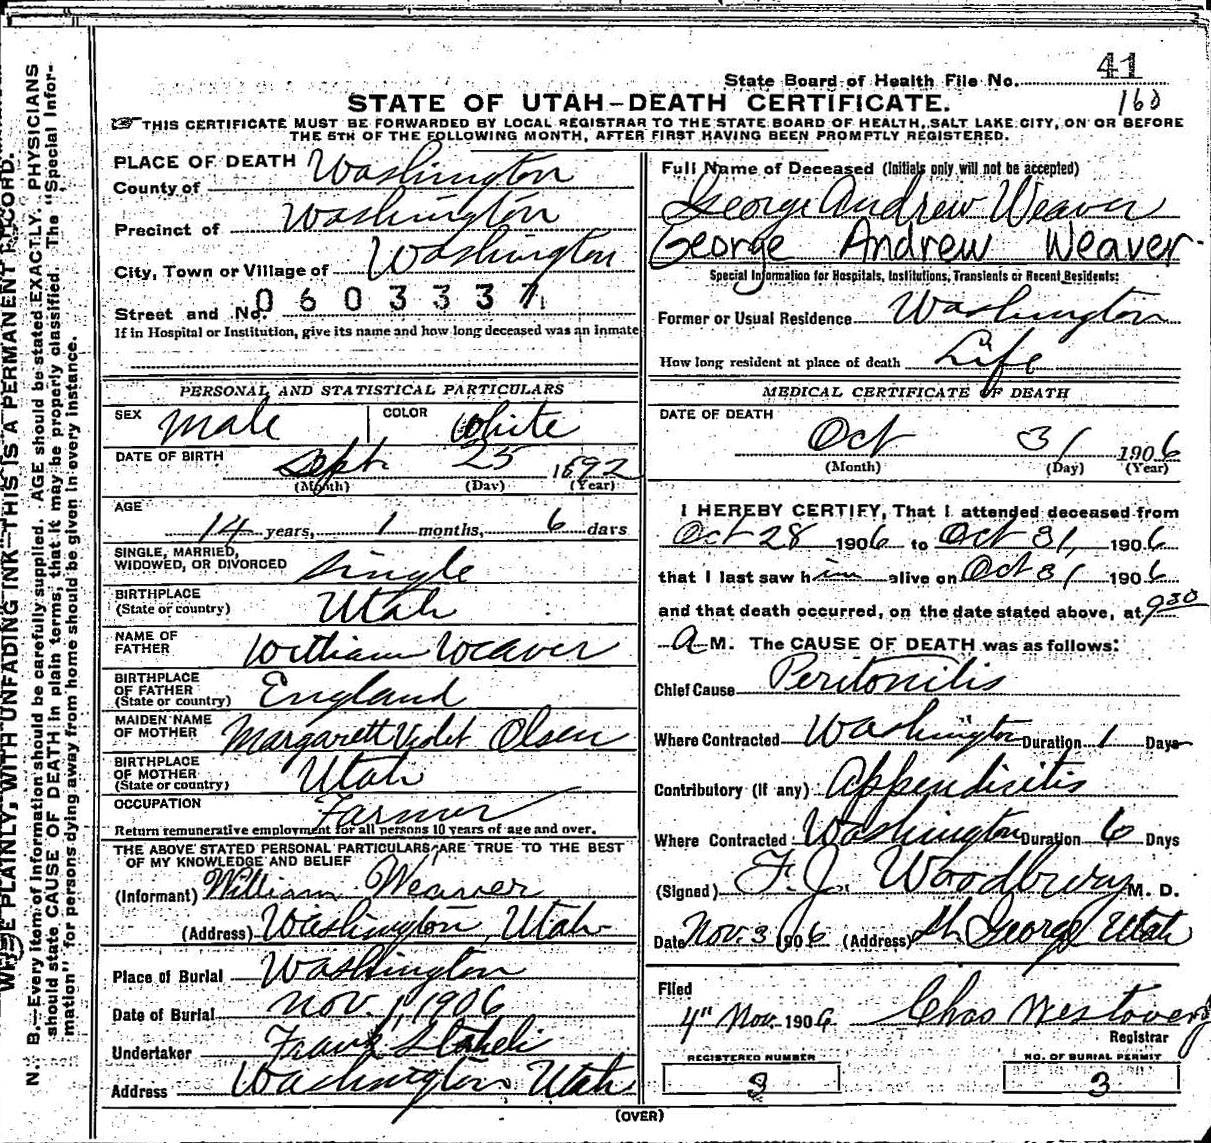 State Board of Health File No. 41
160
STATE OF UTAH—DEATH CERTIFICATE.
THIS CERTIFICATE MUST BE FORWARDED BY LOCAL REGISTRAR TO THE STATE BOARD OF HEALTH, SALT LAKE CITY, ON OR BEFORE
THE 5TH OF THE FOLLOWING MONTH, AFTER FIRST HAVING BEEN PROMPTLY REGISTERED.
PLACE OF DEATH
County of Washington
Precinct of Washington
City, Town or Village of Washington
Street and No. 0603337
If in Hospital or Institution, give its name and how long deceased was an inmate
PERSONAL AND STATISTICAL PARTICULARS
SEX Male COLOR White
DATE OF BIRTH Sept. 25 1892
(Month) (Day) (Year)
AGE
14 years, 1 months, 6 days
SINGLE, MARRIED,
WIDOWED, OR DIVORCED Single
BIRTHPLACE
(State or country) Utah
NAME OF
FATHER William Weaver
BIRTHPLACE
OF FATHER
(State or country) England
MAIDEN NAME
OF MOTHER Margarett Violet Olsen
BIRTHPLACE
OF MOTHER
(State or country) Utah
OCCUPATION Farmer
Return remunerative employment for all persons 10 years of age and over.
THE ABOVE STATED PERSONAL PARTICULARS ARE TRUE TO THE BEST
OF MY KNOWLEDGE AND BELIEF
(Informant) William Weaver
(Address) Washington, Utah
Place of Burial Washington
Date of Burial Nov. 1, 1906
Undertaker Frank Staheli
Address Washington Utah
Full Name of Deceased (Initials only will not be accepted)
George Andrew Weaver
George Andrew Weaver
Special Information for Hospitals, Institutions, Transients or Recent Residents:
Former or Usual Residence Washington
How long resident at place of death Life
MEDICAL CERTIFICATE OF DEATH
DATE OF DEATH
Oct 31 1906
(Month) (Day) (Year)
I HEREBY CERTIFY, That I attended deceased from
Oct 28 1906 to Oct 31, 1906
that I last saw him alive on Oct 31 1906
and that death occurred, on the date stated above, at 9 30
a M. The CAUSE OF DEATH was as follows:
Chief Cause Peritonitis
Where Contracted Washington Duration 1 Days
Contributory (If any) Appendisitis
Where Contracted Washington Duration 6 Days
(Signed) F. J. Woodbury M. D.
Date Nov. 3 1906 (Address) St. George Utah
Filed
4" Nov. 1906 Chas Westover
Registrar
REGISTERED NUMBER
3
NO. OF BURIAL PERMIT
3
(OVER)
WRITE PLAINLY, WITH UNFADING INK—THIS IS A PERMANENT RECORD.
N. B.—Every item of information should be carefully supplied. AGE should be stated EXACTLY. PHYSICIANS
should state CAUSE OF DEATH in plain terms, that it may be properly classified. The "Special Infor-
mation" for persons dying away from home should be given in every instance.